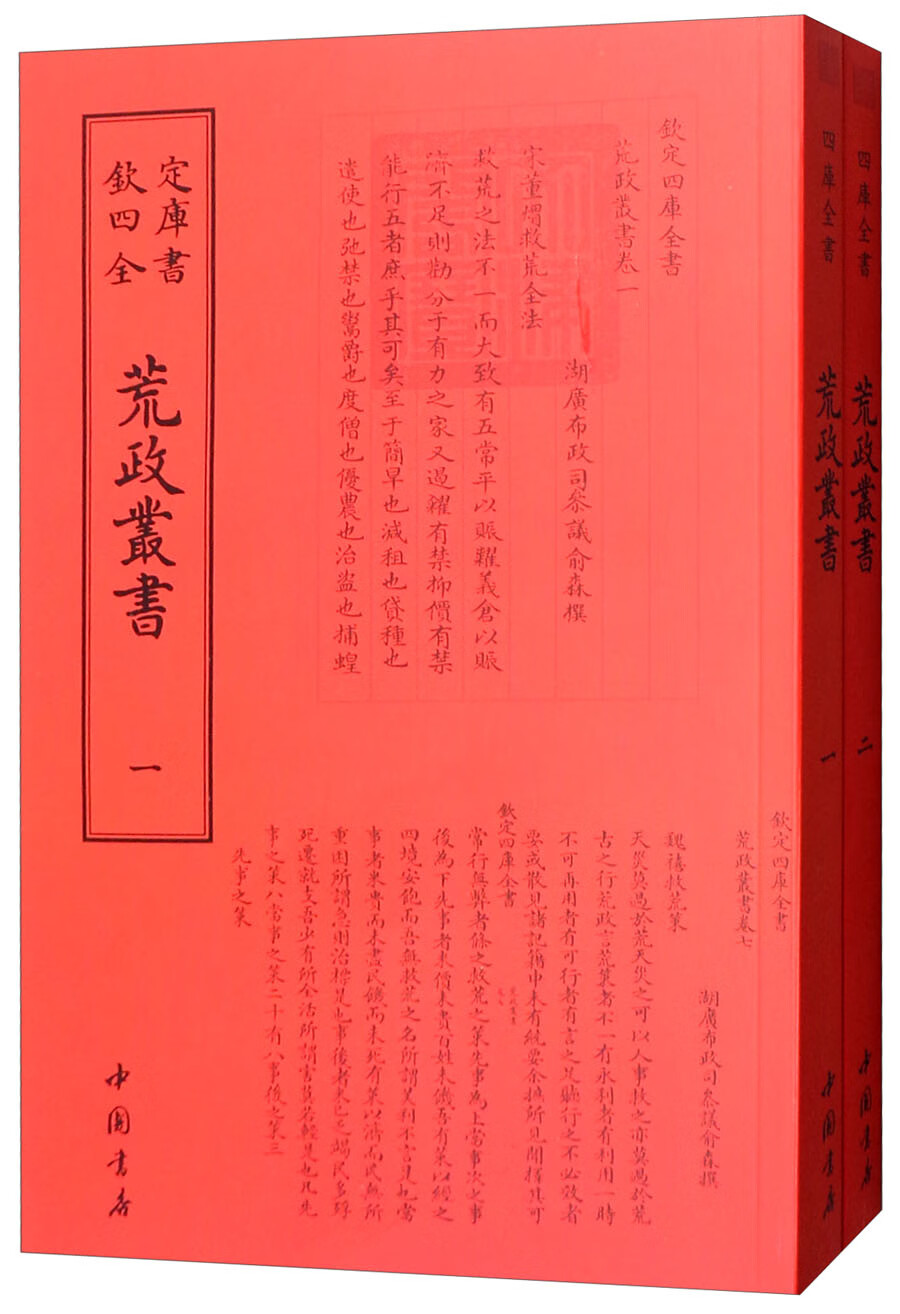 欽定
四庫
全書
荒政叢書
一
中國書店
欽定四庫全書
荒政叢書卷一
湖廣布政司叅議俞森撰
宋董熠救荒全法
救荒之法不一而大致有五常平以賑糶義倉以賑
濟不足則勸分于有力之家又遏糴有禁抑價有禁
能行五者庶乎其可矣至于簡旱也減租也貸種也
遣使也弛禁也鬻爵也度僧也優農也治盜也捕蝗
欽定四庫全書
荒政叢書卷七
湖廣布政司叅議俞森撰
魏禧救荒策
天災莫過於荒天災之可以人事救之亦莫過於荒
古之行荒政言荒策者不一有永利者有利用一時
不可再用者有可行者有言之足聽行之不必效者
要或散見諸記籍中未有統要余搜所見聞擇其可
欽定四庫全書
常行無弊者條之救荒之策先事為上當事次之事
後為下先事者米價未貴百姓未饑吾有策以經之
四境安飽而吾無救荒之名所謂美利不言是也當
事者米貴而未盡民饑而未死有策以濟而民無所
重困所謂急則治標是也事後者米已乏竭民多殍
死遷就支吾少有所全活所謂害莫若輕是也凡先
事之策八當事之策二十有八事後之策三
先事之策
四庫全書
荒政叢書
一
中國書店
四庫全書
荒政叢書
二
中國書店